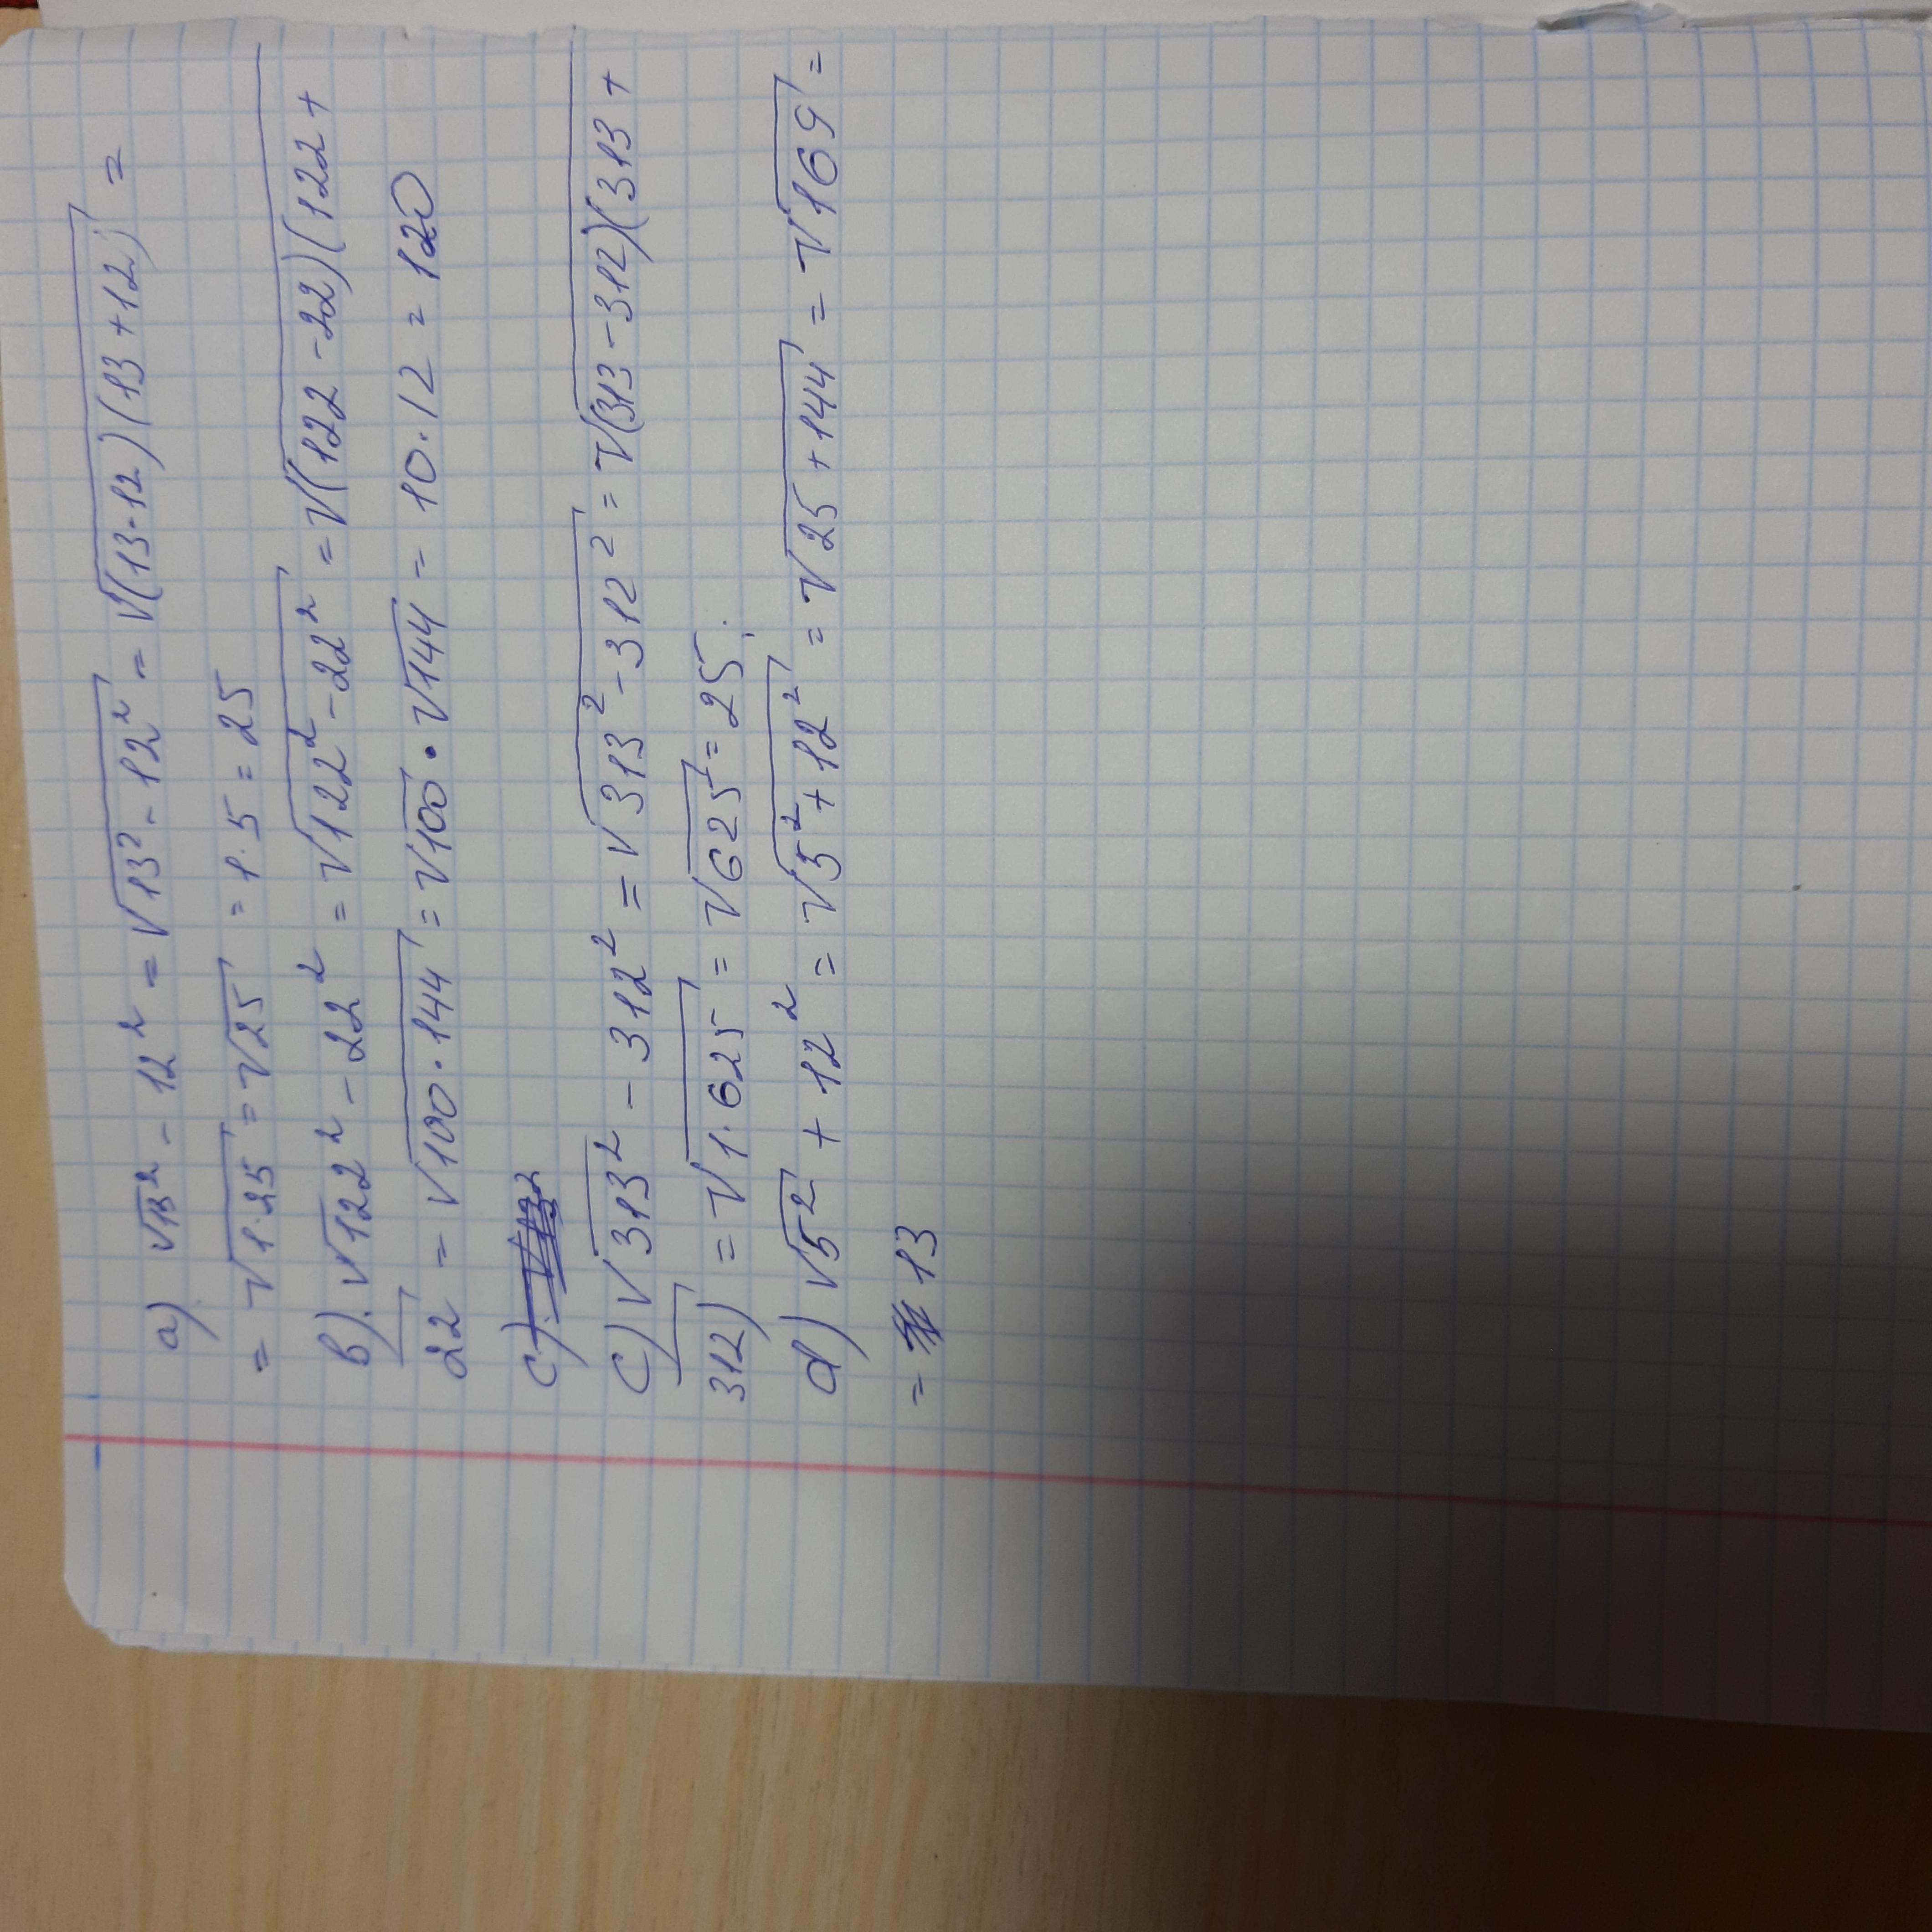 a) √13² - 12² = √13² - 12² = √(13·12)(13+12) =
= √1·25 = √25 = 1·5 = 25
b). √122² - 22² = √122² - 22² = √(122-22)(122+
22 = √100·144 = √100 · √144 = 10·12 = 120
c). √132
c) √313² - 312² = √313² - 312² = √(313-312)(313+
312) = √1·625 = √625 = 25.
d) √5² + 12² = √5² + 12² = √25+144 = √169 =
= 13